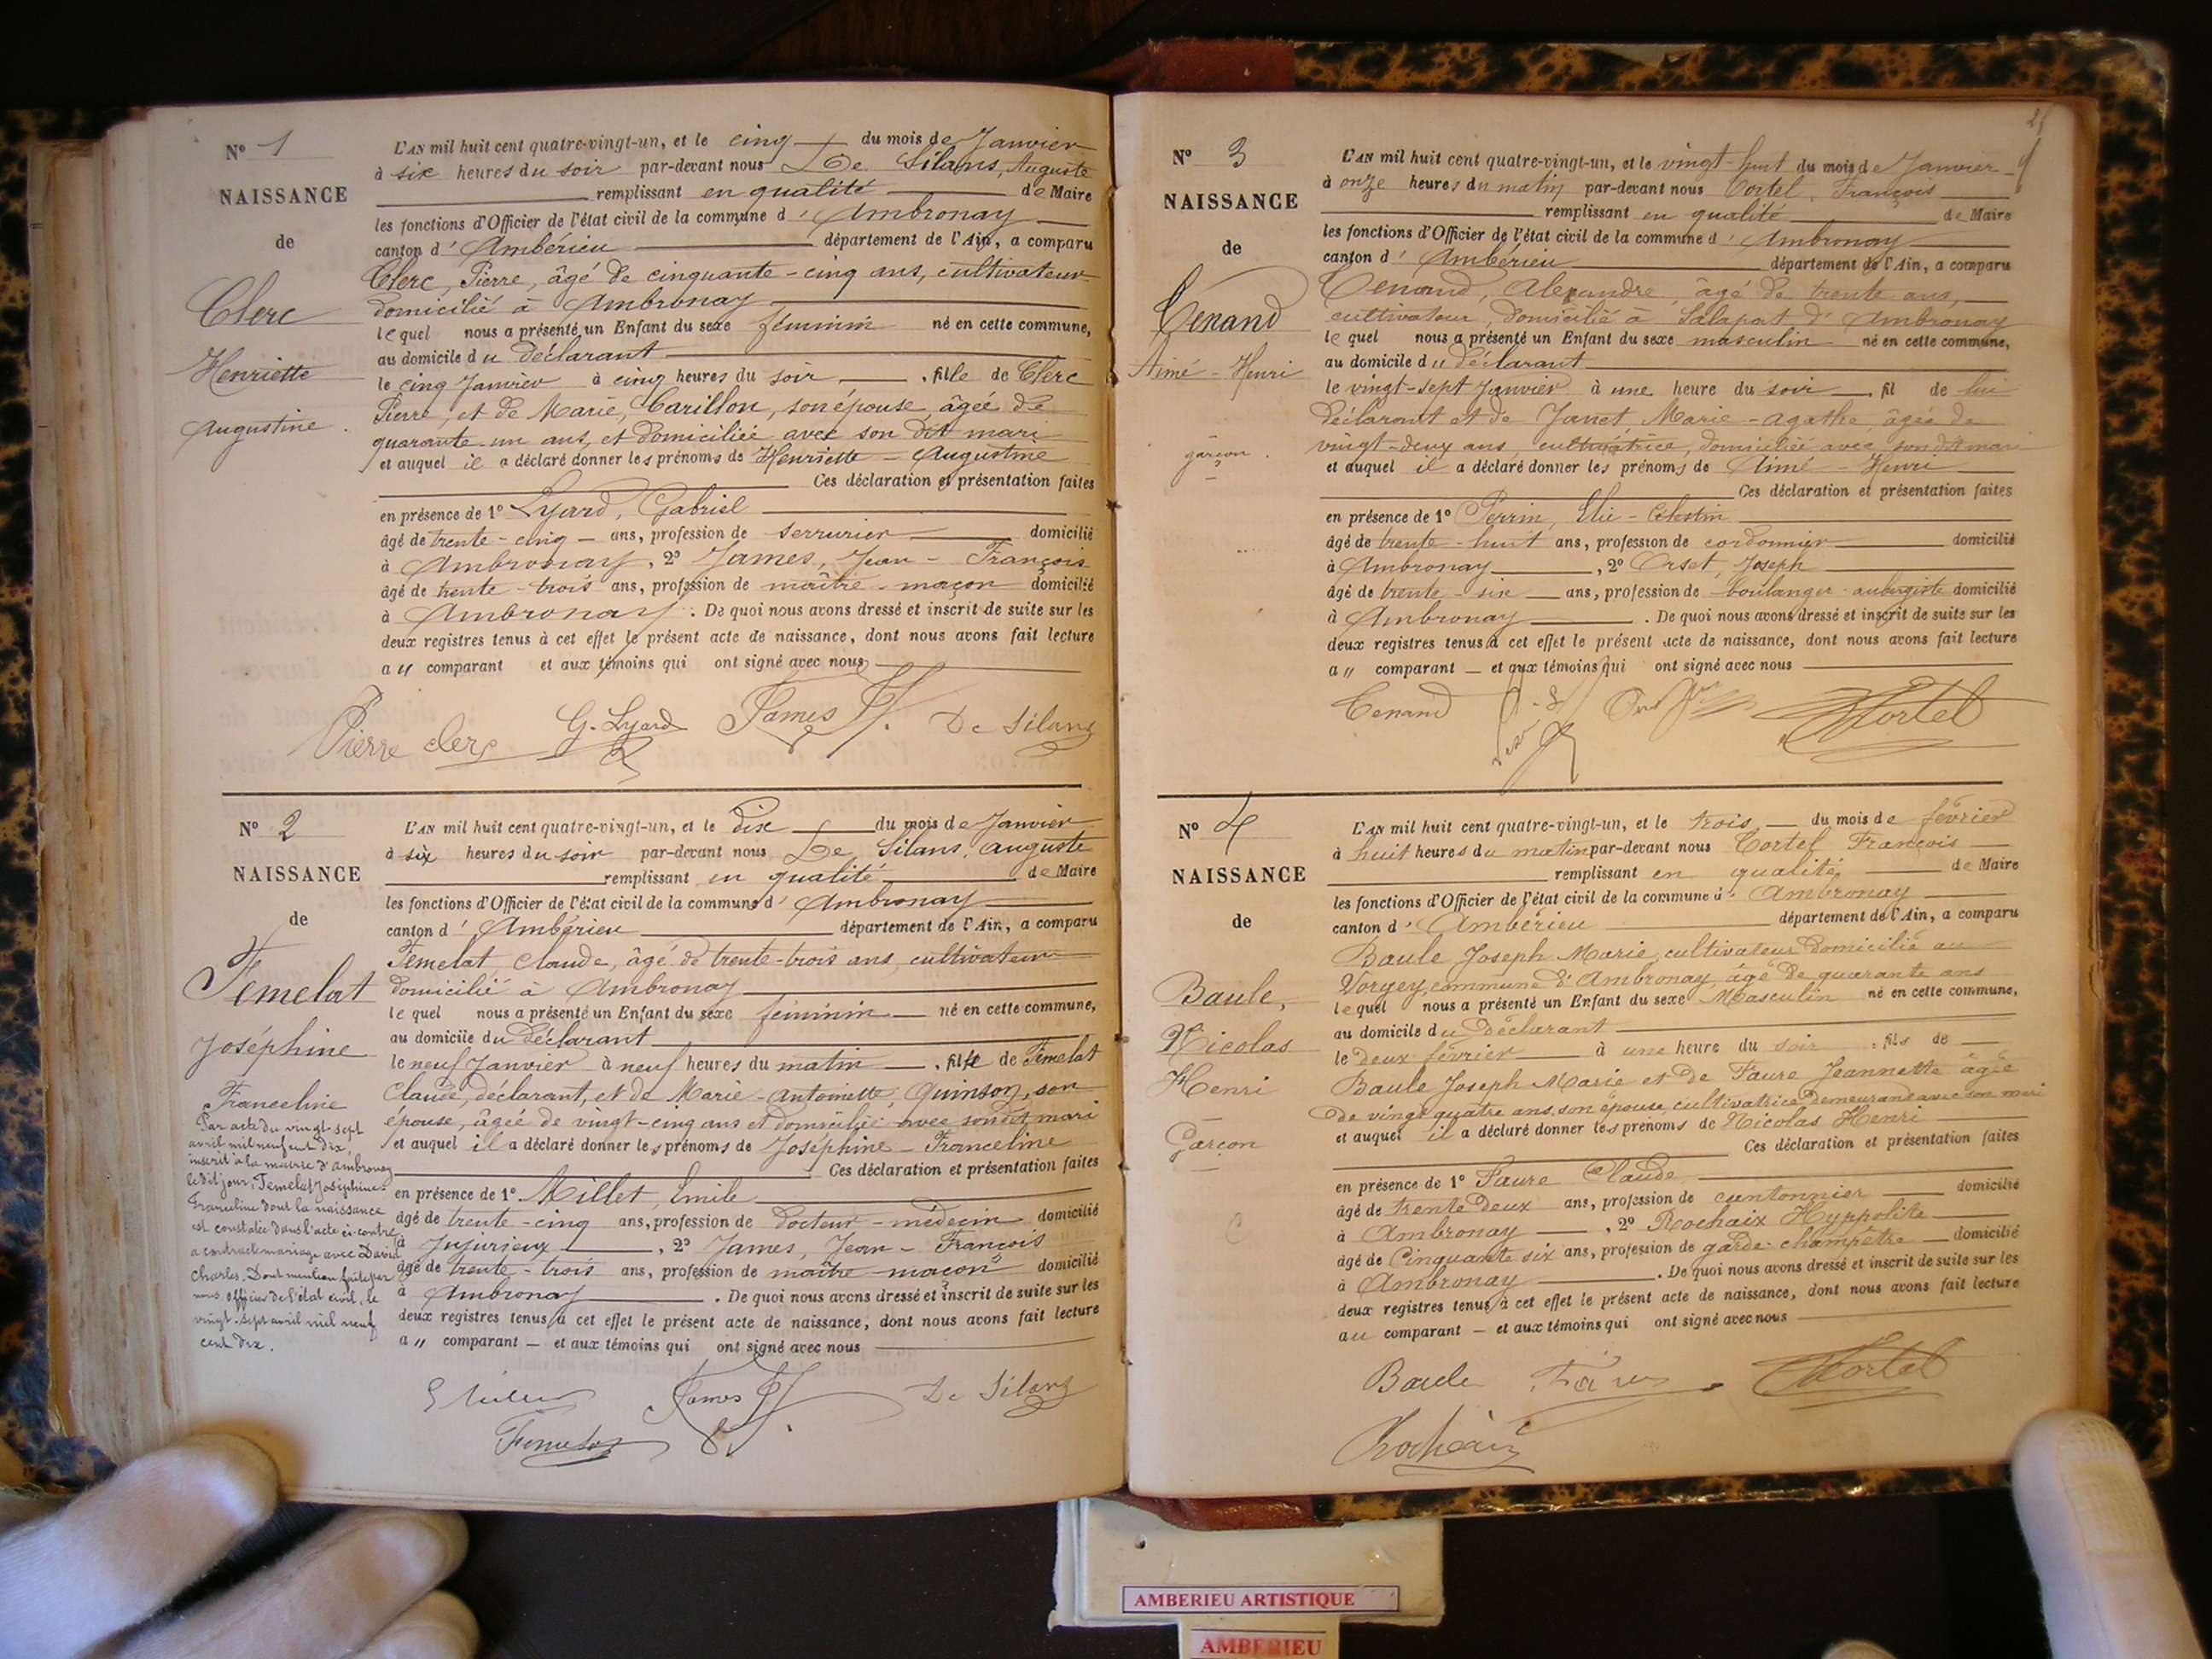 N° 1
NAISSANCE
de
Clerc
Henriette
Augustine.
L'AN mil huit cent quatre-vingt-un, et le cinq du mois de Janvier
à six heures du soir par-devant nous De Silans, Auguste
remplissant en qualité de Maire
les fonctions d'Officier de l'état civil de la commune d'Ambronay
canton d'Ambérieu département de l'Ain, a comparu
Clerc, Pierre, âgé de cinquante-cinq ans, cultivateur
domicilié à Ambronay
lequel nous a présenté un Enfant du sexe féminin né en cette commune,
au domicile du déclarant
le cinq Janvier à cinq heures du soir, fille de Clerc
Pierre, et de Marie, Carillon, son épouse, âgée de
quarante-un ans, et domiciliée avec son dit mari
et auquel il a déclaré donner les prénoms de Henriette-Augustine
Ces déclaration et présentation faites
en présence de 1° Lyard, Gabriel
âgé de trente-cinq ans, profession de serrurier domicilié
à Ambronay, 2° James, Jean-François
âgé de trente-trois ans, profession de maître-maçon domicilié
à Ambronay. De quoi nous avons dressé et inscrit de suite sur les
deux registres tenus à cet effet le présent acte de naissance, dont nous avons fait lecture
au comparant et aux témoins qui ont signé avec nous
Pierre clerc G. Lyard James De Silans
N° 2
NAISSANCE
de
Femelat
Joséphine
Franceline
Par acte du vingt-sept
avril mil neuf cent dix,
inscrit à la mairie d'Ambronay
le dit jour, Femelat Joséphine-
Franceline dont la naissance
est constatée dans l'acte ci-contre
a contracté mariage avec David
Charles. Dont mention faite par
nous officier de l'état civil, le
vingt-sept avril mil neuf
cent dix.
L'AN mil huit cent quatre-vingt-un, et le dix du mois de Janvier
à six heures du soir par-devant nous De Silans, Auguste
remplissant en qualité de Maire
les fonctions d'Officier de l'état civil de la commune d'Ambronay
canton d'Ambérieu département de l'Ain, a comparu
Femelat Claude, âgé de trente-trois ans, cultivateur
domicilié à Ambronay
lequel nous a présenté un Enfant du sexe féminin né en cette commune,
au domicile du déclarant
le neuf Janvier à neuf heures du matin, fille de Femelat
Claude, déclarant, et de Marie-Antoinette, Quinson, son
épouse, âgée de vingt-cinq ans et domiciliée avec son dit mari
et auquel il a déclaré donner les prénoms de Joséphine-Franceline
Ces déclaration et présentation faites
en présence de 1° Millet, Emile
âgé de trente-cinq ans, profession de docteur-médecin domicilié
à Jujurieux, 2° James, Jean-François
âgé de trente-trois ans, profession de maître-maçon domicilié
à Ambronay. De quoi nous avons dressé et inscrit de suite sur les
deux registres tenus à cet effet le présent acte de naissance, dont nous avons fait lecture
a " comparant – et aux témoins qui ont signé avec nous
James De Silans
Femelat
N° 3
NAISSANCE
de
Tenand
Aimé-Henri
garçon.
L'AN mil huit cent quatre-vingt-un, et le vingt-huit du mois de Janvier
à onze heures du matin par-devant nous Tortel, François
remplissant en qualité de Maire
les fonctions d'Officier de l'état civil de la commune d'Ambronay
canton d'Ambérieu département de l'Ain, a comparu
Tenand, Alexandre, âgé de trente ans,
cultivateur, domicilié à Salaport d'Ambronay
lequel nous a présenté un Enfant du sexe masculin né en cette commune,
au domicile du déclarant
le vingt-sept Janvier à une heure du soir, fil de lui
déclarant et de Janet, Marie-Agathe, âgée de
vingt-deux ans, cultivatrice, domiciliée avec son dit mari
et auquel il a déclaré donner les prénoms de Aimé-Henri
Ces déclaration et présentation faites
en présence de 1° Perrin, Elie-Célestin
âgé de trente-huit ans, profession de cordonnier domicilié
à Ambronay, 2° Orset, Joseph
âgé de trente-six ans, profession de boulanger-aubergiste domicilié
à Ambronay. De quoi nous avons dressé et inscrit de suite sur les
deux registres tenus à cet effet le présent acte de naissance, dont nous avons fait lecture
a " comparant – et aux témoins qui ont signé avec nous
Tenand Tortel
N° 4
NAISSANCE
de
Baule,
Nicolas
Henri
Garçon
L'AN mil huit cent quatre-vingt-un, et le trois du mois de février
à huit heures du matin par-devant nous Tortel François
remplissant en qualité de Maire
les fonctions d'Officier de l'état civil de la commune d'Ambronay
canton d'Ambérieu département de l'Ain, a comparu
Baule Joseph Marie, cultivateur domicilié au
Vorgey, commune d'Ambronay, âgé de quarante ans
lequel nous a présenté un Enfant du sexe Masculin né en cette commune,
au domicile du déclarant
le deux février à une heure du soir, fils de
Baule Joseph Marie et de Faure Jeannette âgée
de vingt quatre ans, son épouse, cultivatrice demeurant avec son mari
et auquel il a déclaré donner les prénoms de Nicolas Henri
Ces déclaration et présentation faites
en présence de 1° Faure Claude
âgé de trente deux ans, profession de cantonnier domicilié
à Ambronay, 2° Rochaix Hyppolite
âgé de Cinquante six ans, profession de garde-champêtre domicilié
à Ambronay. De quoi nous avons dressé et inscrit de suite sur les
deux registres tenus à cet effet le présent acte de naissance, dont nous avons fait lecture
au comparant – et aux témoins qui ont signé avec nous
Baule Faure Tortel
Rochaix
AMBERIEU ARTISTIQUE
AMBERIEU